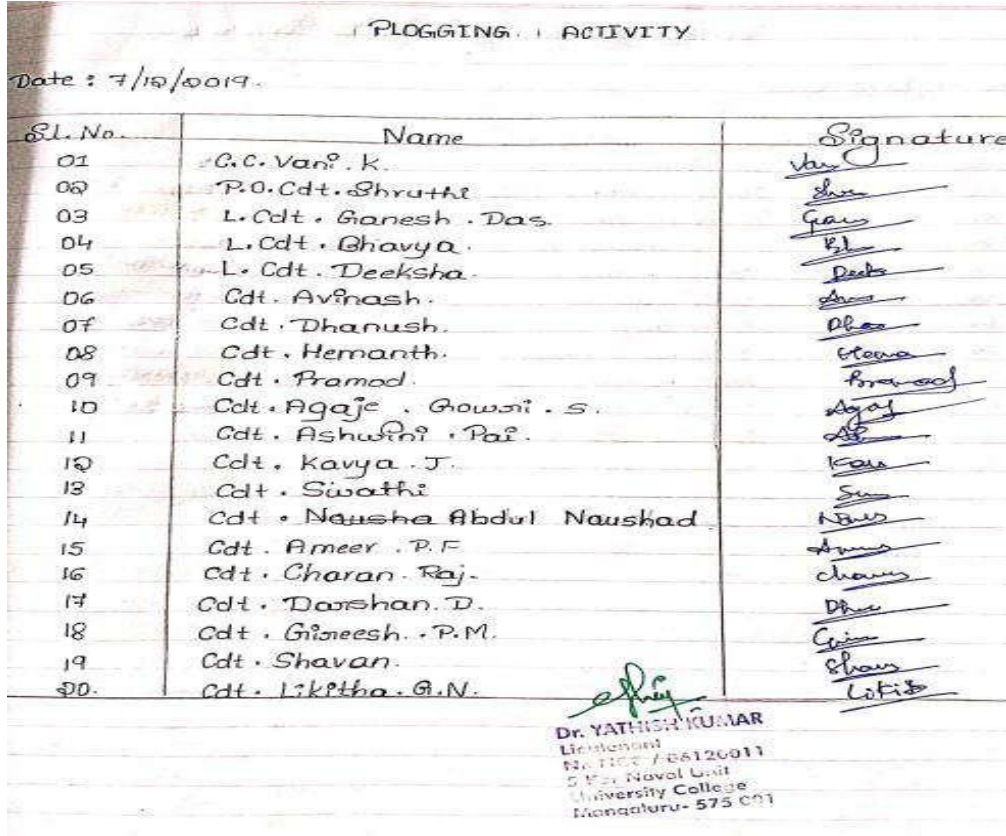 PLOGGING ACTIVITY
Date : 7/12/2019.
Sl. No. Name Signature
01 C.C. Vani. K. Van
02 P.O. Cdt. Shruthi
03 L. Cdt. Ganesh. Das.
04 L. Cdt. Bhavya.
05 L. Cdt. Deeksha. Deeks
06 Cdt. Avinash.
07 Cdt. Dhanush.
08 Cdt. Hemanth.
09 Cdt. Pramod. Pramod
10 Cdt. Agaje. Gowri. S. Agaj
11 Cdt. Ashwini. Pai.
12 Cdt. Kavya. J.
13 Cdt. Swathi
14 Cdt. Nausha Abdul Naushad
15 Cdt. Ameer. P.F
16 Cdt. Charan. Raj.
17 Cdt. Darshan. D.
18 Cdt. Gireesh. P.M.
19 Cdt. Shavan.
20. Cdt. Likitha. G.N.
Dr. YATHISH KUMAR
Lieutenant
University College
Mangaluru- 575 001